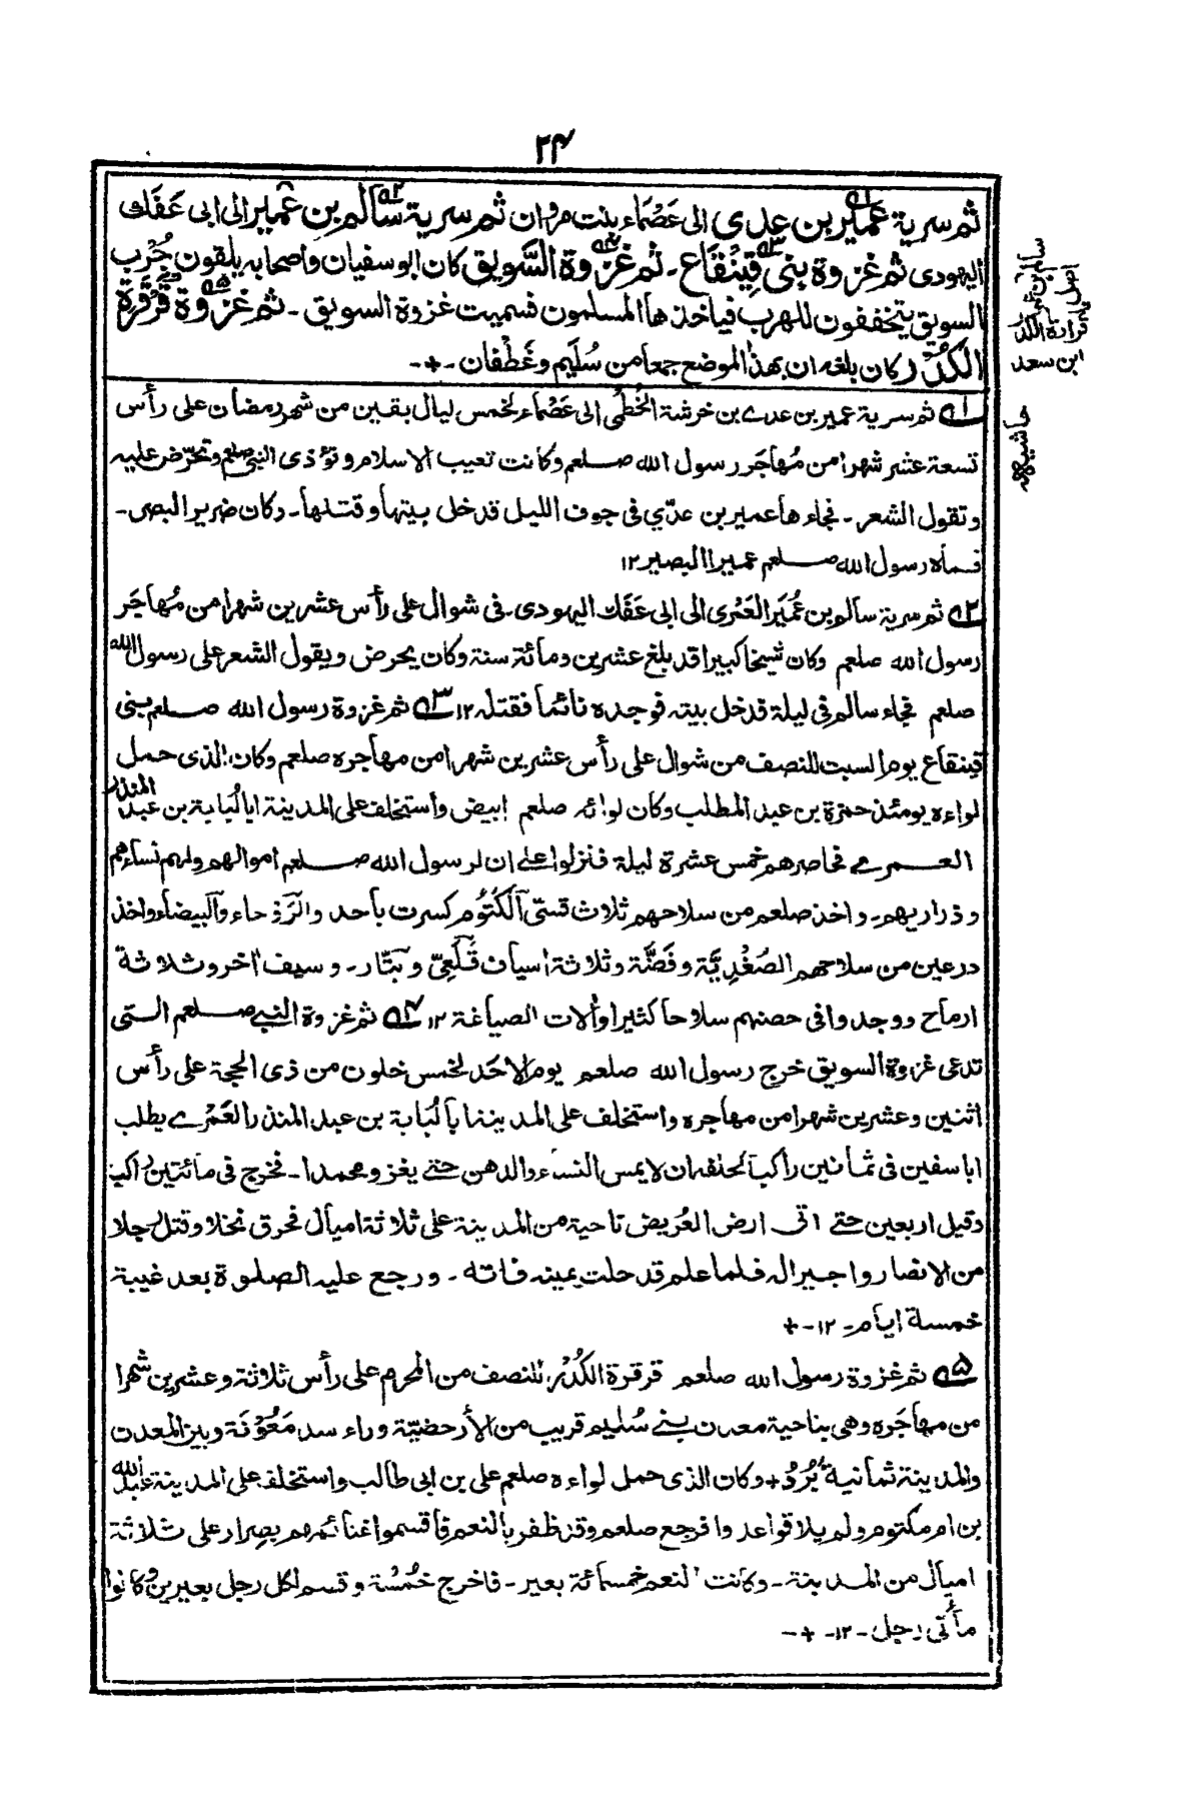 ۲۴
ثم سرية عمير بن عدى الى عَصْمَاء بنت مروان ثم سرية سالم بن عُمير الى ابى عَفَك
اليهودى ثم غزوة بنى قينُقَاع ـ ثم غزوة السَّويق كان ابو سفيان واصحابه يلقون جُرُب
السويق يتخففون للهرب فياخذها المسلمون فسميت غزوة السويق ـ ثم غزوة قَرْقَرة
الكُدْر كان بلغه ان بهذا الموضع جمعا من سُلَيم وغَطْفان ـ+ـ
۱ ثم سرية عمير بن عدے بن خرشة الخُطْمى الى عَصْمَاء لخمس ليال بقين من شهر رمضان على رأس
تسعة عشر شهرا من مُهاجَر رسول الله صلعم وكانت تعيب الاسلام وتؤذى النبى صلعم وتحرّض عليه
وتقول الشعر ـ فجاءها عمير بن عدّي فى جوف الليل فدخل بيتها وقتلها ـ وكان ضرير البصر ـ
فسماه رسول الله صلعم عميرا البصير ۱۲
۲ ثم سرية سالم بن عُمَير العَمْرى الى ابى عَفَك اليهودى ـ فى شوال على رأس عشرين شهرا من مُهاجَر
رسول الله صلعم وكان شيخا كبيرا قد بلغ عشرين ومائة سنة وكان يحرض ويقول الشعر على رسول الله
صلعم فجاء سالم فى ليلة فدخل بيته فوجده نائما فقتله ۱۲ ۳ ثم غزوة رسول الله صلعم بنى
قينقاع يوم السبت للنصف من شوال على رأس عشرين شهرا من مهاجره صلعم وكان الذى حمل
لواءه يومئذ حمزة بن عبد المطلب وكان لوائه صلعم ابيض واستخلف على المدينة ابا لُبابة بن عبد المنذر
العمرے فحاصرهم خمس عشرة ليلة فنزلوا على ان لرسول الله صلعم اموالهم ولهم نساءهم
وذراريهم ـ واخذ صلعم من سلاحهم ثلاث قسىّ الكَتُوم كسرت باحد والرَّوحاء والبيضاء واخذ
درعين من سلاحهم الصُغْدِيَّة وفضَّة وثلاثة اسياف قَلَعِىّ وبَتّار ـ وسيف اخر وثلاثة
ارماح ووجدوا فى حصنهم سلاحا كثيرا والات الصياغة ۱۲ ۴ ثم غزوة النبے صلعم التى
تدعى غزوة السويق خرج رسول الله صلعم يوم الاحَد لخمس خلون من ذى الحجة على رأس
اثنين وعشرين شهرا من مهاجره واستخلف على المدينة ابا لُبابة بن عبد المنذر العَمْرے يطلب
ابا سفين فى ثمانين راكبا لحلفه ان لا يمس النساء والدهن حتے يغزو محمدا ـ فخرج فى مائتين راكب
وقيل اربعين حتے اتى ارض العُريض ناحية من المدينة على ثلاثة اميال فحرق نخلا وقتل رجلا
من الانصار واجيرا له فلما علم قد حلت يمينه فاته ـ ورجع عليه الصلوة بعد غيبة
خمسة ايام ـ ۱۲ ـ +
۵ ثم غزوة رسول الله صلعم قرقرة الكُدْر للنصف من المحرم على رأس ثلاثة وعشرين شهرا
من مهاجَره وهى بناحية معدن بنے سُليم قريب من الأرحضيّة وراء سد مَعُوْنَة وبين المعدن
والمدينة ثمانية بُرُدٌ + وكان الذى حمل لواءه صلعم على بن ابى طالب واستخلف على المدينة عبد الله
بن ام مكتوم ولم يلاقوا عدوا فرجع صلعم وقد ظفر بالنعم فاقسموا غنائمهم بصِرار على ثلاثة
اميال من المدينة ـ وكانت النعم خمسمائة بعير ـ فاخرج خُمُسَة وقسم لكل رجل بعيرين وكانوا
مأتى رجل ـ ۱۲ ـ + ـ
ابن سعد
حاشيه